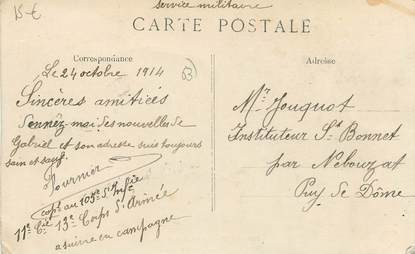 15 €
Service militaire
CARTE POSTALE
Correspondance
Adresse
Le 24 octobre 1914
53
Sincères amitiés
Donnéz-moi des nouvelles de
Gabriel et son adresse suis toujours
sain et sauf.
Fournier
capl au 105e d'Infie
11e Cie 13e Corps d'Armée
a suivre en campagne
Mr Jouquot
Instituteur St Bonnet
par Nebouzat
Puy de Dôme